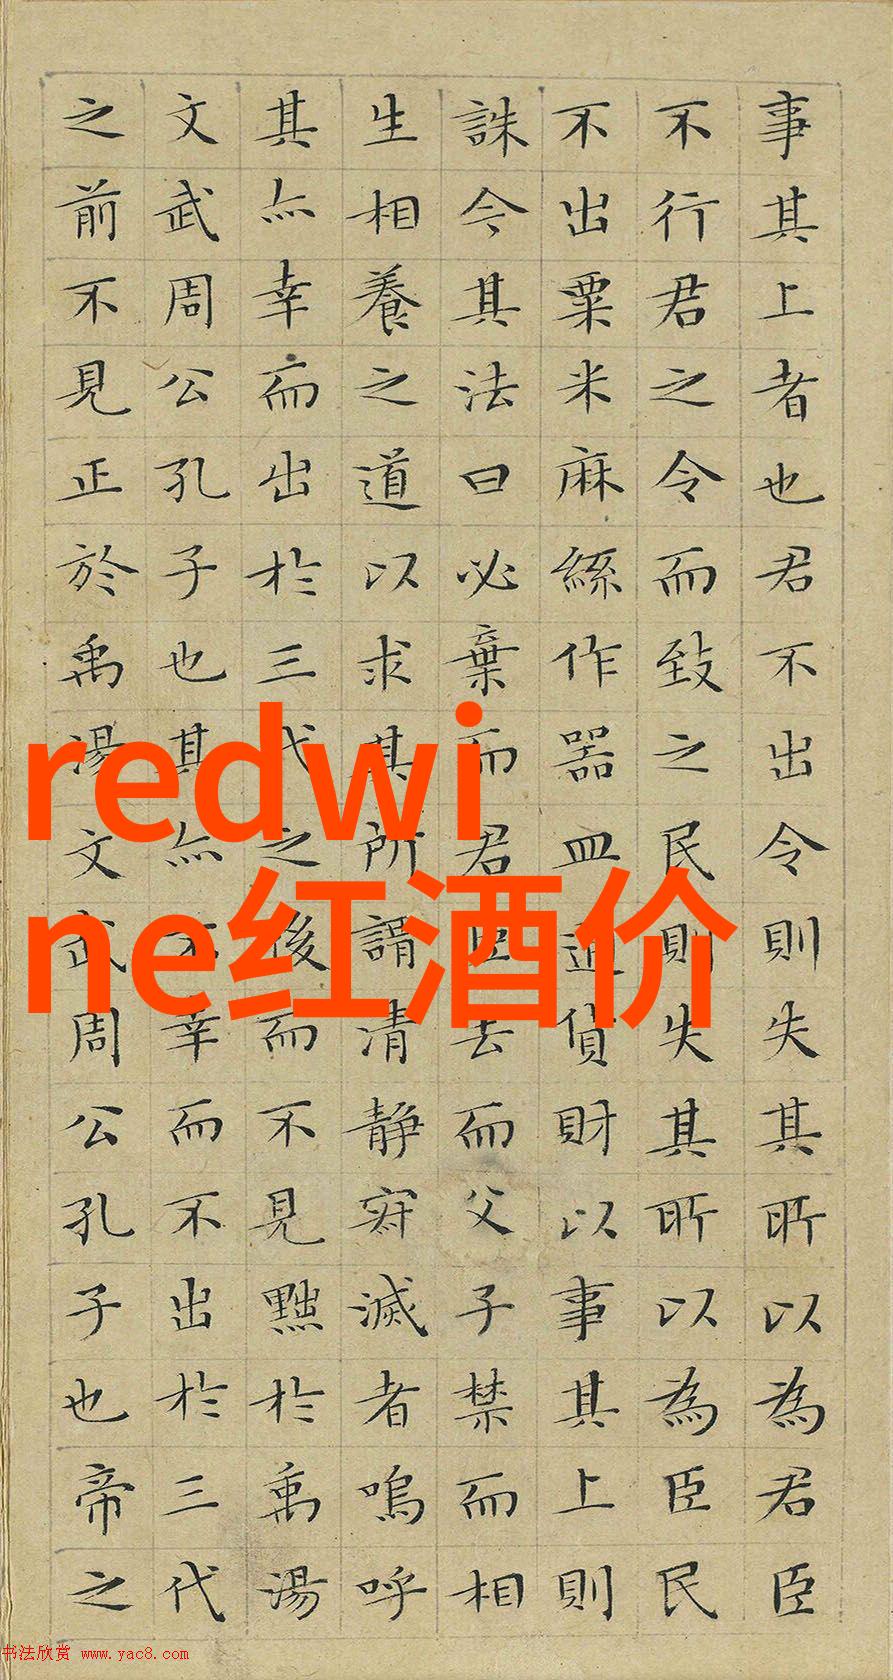 事其上者也君不出令則失其所以為君臣
不行君之令而致之民則失其所以為臣民
不出粟米麻絲作器皿通貨財以事其上則
誅今其法曰必棄而君臣去而父子禁而相
生相養之道以求其所謂清静寂滅者嗚呼
其亦幸而出於三代之後而不見黜於禹湯
文武周公孔子也其亦不幸而不出於三代
之前不見正於禹湯文武周公孔子也帝之
redwi
ne红酒价
书法欣赏 www.yac8.com